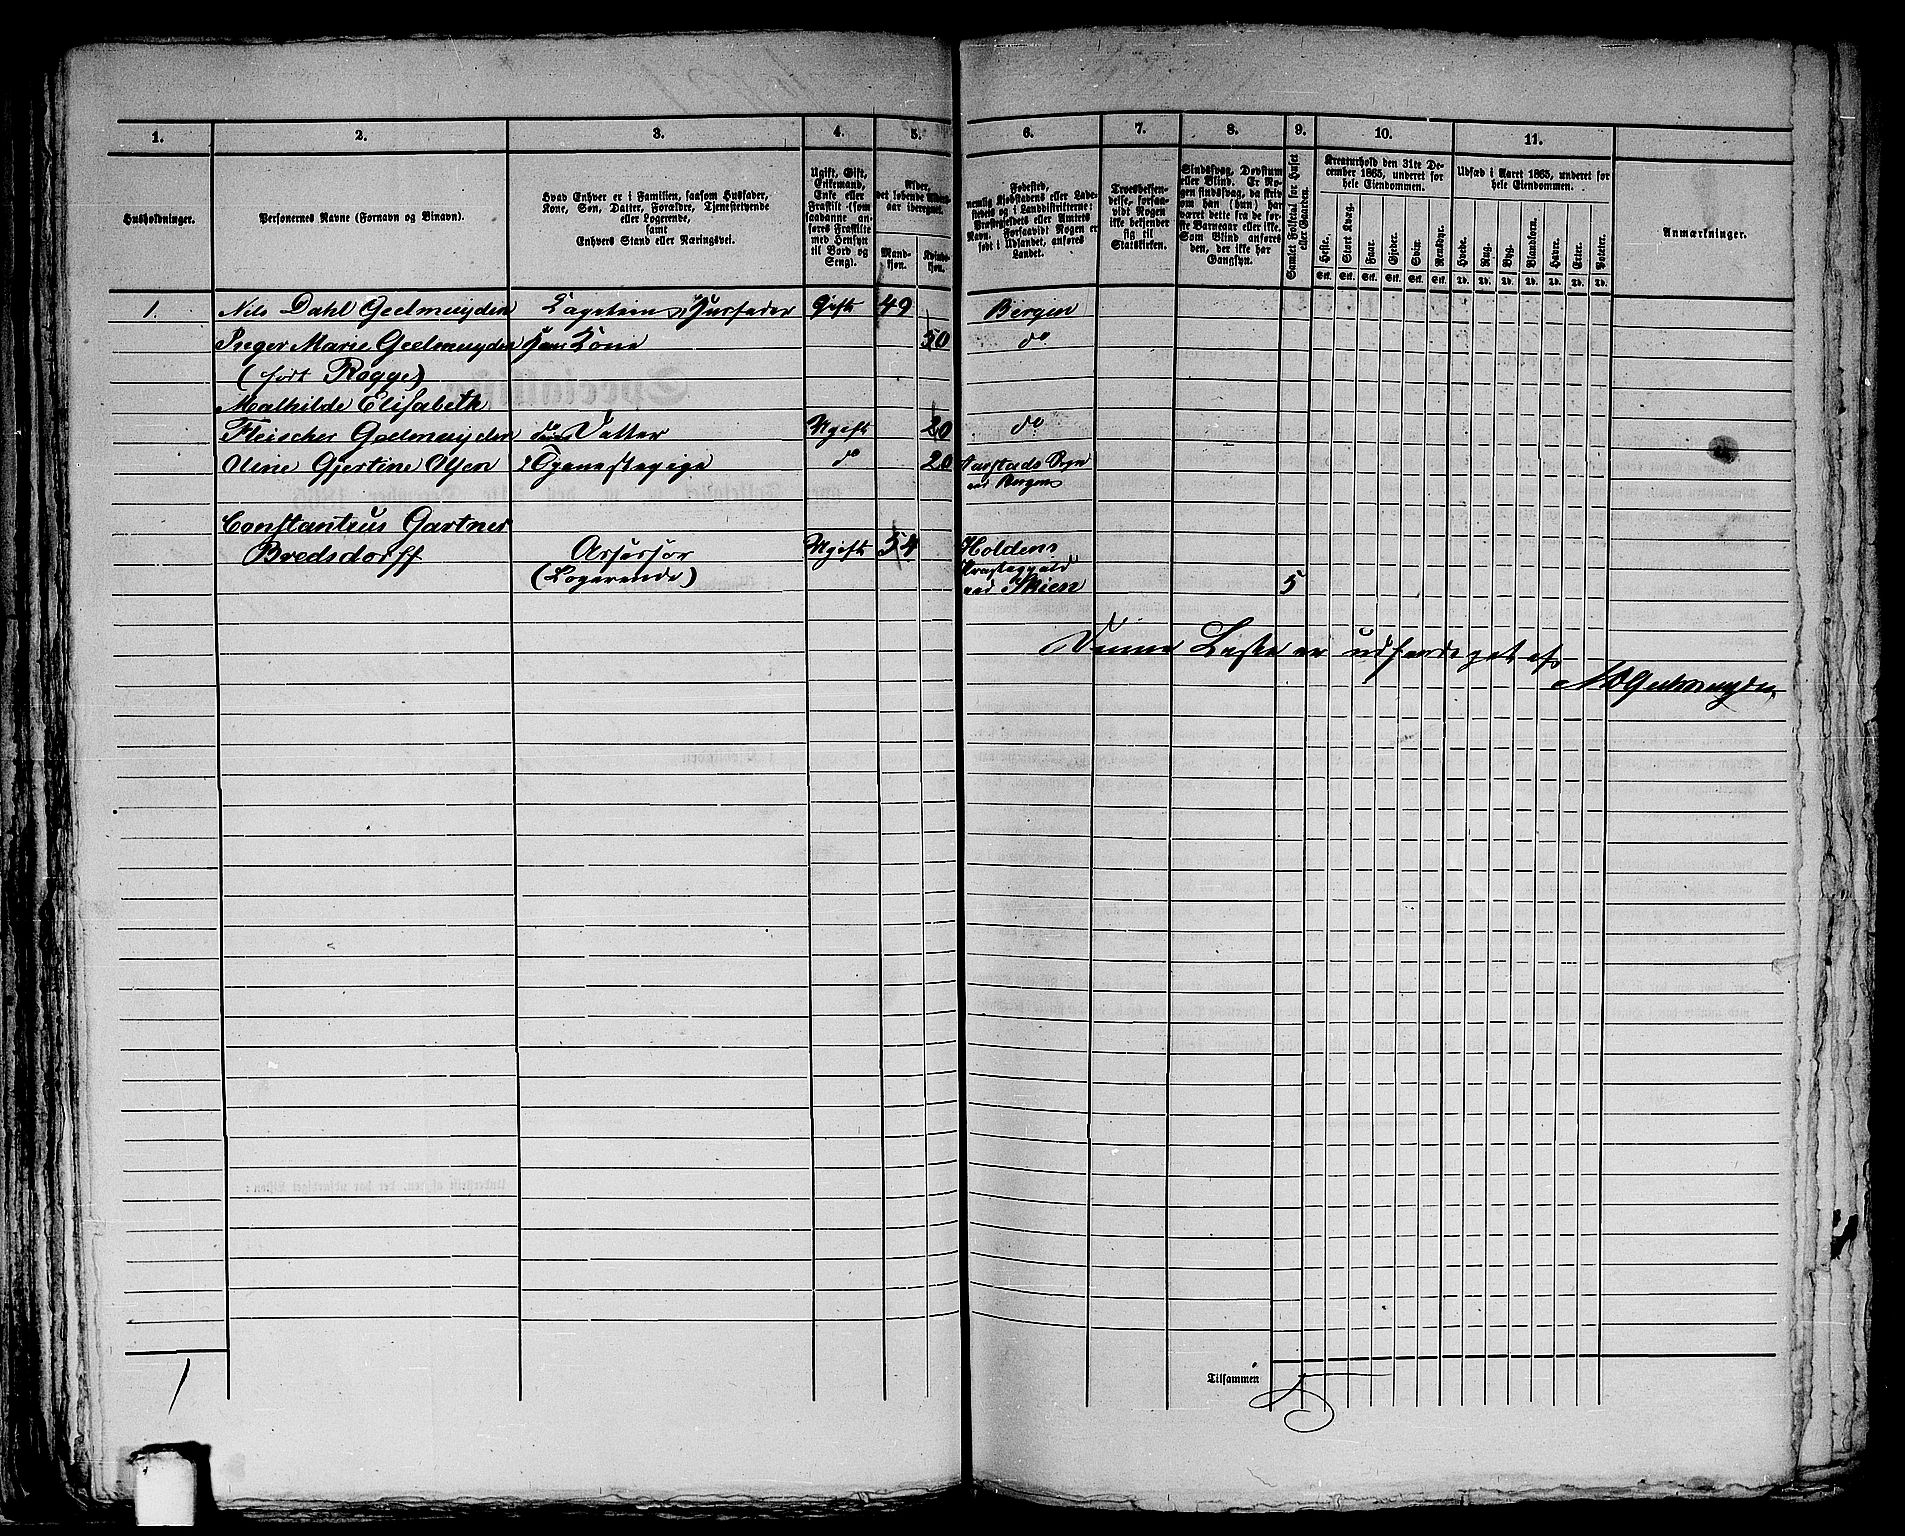 1. 2. 3. 4. 5. 6. 7. 8. 9. 10. 11.
Husholdninger.
Personernes Navne (Fornavn og Binavn).
Hvad Enhver er i Familien, saasom Husfader,
Kone, Søn, Datter, Forældre, Tjenstetyende
eller Logerende,
samt
Enhvers Stand eller Næringsvei.
Ugift, Gift,
Enkemand,
Enke eller
Fraskilt (som
saadanne an-
føres Fraskilte
med Hensyn
til Bord og
Seng).
Alder,
det løbende Alders-
aar iberegnet.
Mand-
kjøn.
Kvinde-
kjøn.
Fødested,
nemlig Kjøbstadens eller Lade-
stedets og i Landdistrikterne:
Præstegjeldets eller Amtets
Navn. Forsaavidt Nogen er
født i Udlandet, anføres
Landet.
Troesbekjen-
delse, forsaa-
vidt Nogen
ikke bekjender
sig til
Statskirken.
Sindssvag, Døvstum
eller Blind. Er No-
gen sindssvag, da skriv
om han (hun) har
været dette fra de før-
ste Barneaar eller ikke.
Som Blind anføres
den, der ikke har
Gangsyn.
Samlet Folketal for Huset
eller Gaarden.
Kreaturhold den 31te De-
cember 1865, underet for
hele Eiendommen.
Heste. Stort Kvæg. Faar. Gjeder. Svin. Rensdyr.
Stk. Stk. Stk. Stk. Stk. Stk.
Udsæd i Aaret 1865, underet for
hele Eiendommen.
Hvede. Rug. Byg. Blandkorn. Havre. Erter. Poteter.
Td. Td. Td. Td. Td. Td. Td.
Anmærkninger.
1. Nils Dahl Geelmuyden Capitein Husfader Gift 49 Bergen
Inger Marie Geelmuyden Hans Kone 50 do
(født Rogge)
Mathilde Elisabeth
Fleischer Geelmuyden Datter Ugift 20 do
Oline Gjertine Olsen Tjenestepige do 20 Aarstads Sogn
ved Bergen
Constantius Gartner
Bredsdorff Assessor Ugift 54 Holdens
(Logerende) Præstegjeld
ved Skien 5
Denne Liste er udfærdiget af
NDGeelmuyden
Tilsammen 5
1